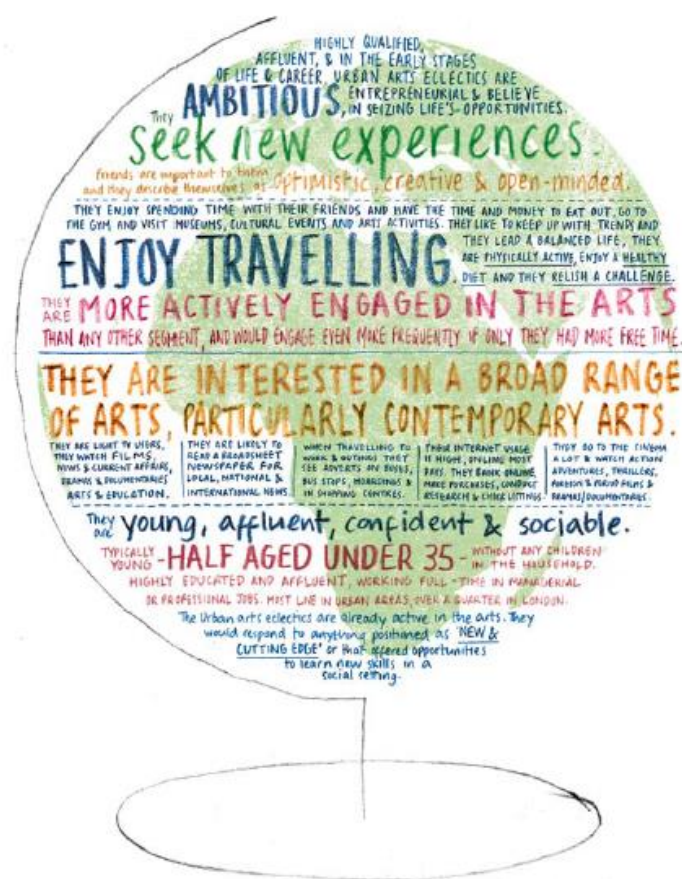 HIGHLY QUALIFIED,
AFFLUENT, & IN THE EARLY STAGES
OF LIFE & CAREER, URBAN ARTS ECLECTICS ARE
AMBITIOUS, ENTREPRENEURIAL & BELIEVE
IN SEIZING LIFE'S OPPORTUNITIES.
They
seek new experiences.
Friends are important to them
and they describe themselves as optimistic, creative & open-minded.
THEY ENJOY SPENDING TIME WITH THEIR FRIENDS AND HAVE THE TIME AND MONEY TO EAT OUT, GO TO
THE GYM AND VISIT MUSEUMS, CULTURAL EVENTS AND ARTS ACTIVITIES. THEY LIKE TO KEEP UP WITH TRENDS AND
ENJOY TRAVELLING.
THEY LEAD A BALANCED LIFE, THEY
ARE PHYSICALLY ACTIVE, ENJOY A HEALTHY
DIET AND THEY RELISH A CHALLENGE.
THEY
ARE MORE ACTIVELY ENGAGED IN THE ARTS
THAN ANY OTHER SEGMENT, AND WOULD ENGAGE EVEN MORE FREQUENTLY IF ONLY THEY HAD MORE FREE TIME.
THEY ARE INTERESTED IN A BROAD RANGE
OF ARTS, PARTICULARLY CONTEMPORARY ARTS.
THEY ARE LIGHT TV USERS,
THEY WATCH FILMS,
NEWS & CURRENT AFFAIRS,
DRAMAS & DOCUMENTARIES
ARTS & EDUCATION.
THEY ARE LIKELY TO
READ A BROADSHEET
NEWSPAPER FOR
LOCAL, NATIONAL &
INTERNATIONAL NEWS.
WHEN TRAVELLING TO
WORK & OUTINGS THEY
SEE ADVERTS ON BUSES,
BUS STOPS, HOARDINGS &
IN SHOPPING CENTRES.
THEIR INTERNET USAGE
IS HIGH, ONLINE MOST
DAYS. THEY BANK ONLINE,
MAKE PURCHASES, CONDUCT
RESEARCH & CHECK LISTINGS.
THEY GO TO THE CINEMA
A LOT & WATCH ACTION
ADVENTURES, THRILLERS,
FOREIGN & FILMS &
DRAMAS/DOCUMENTARIES.
They
are young, affluent, confident & sociable.
TYPICALLY
YOUNG - HALF AGED UNDER 35 - WITHOUT ANY CHILDREN
IN THE HOUSEHOLD.
HIGHLY EDUCATED AND AFFLUENT, WORKING FULL-TIME IN MANAGERIAL
OR PROFESSIONAL JOBS. MOST LIVE IN URBAN AREAS, OVER A QUARTER IN LONDON.
The Urban arts eclectics are already active in the arts. They
would respond to anything positioned as 'NEW &
CUTTING EDGE' or that offered opportunities
to learn new skills in a
social setting.